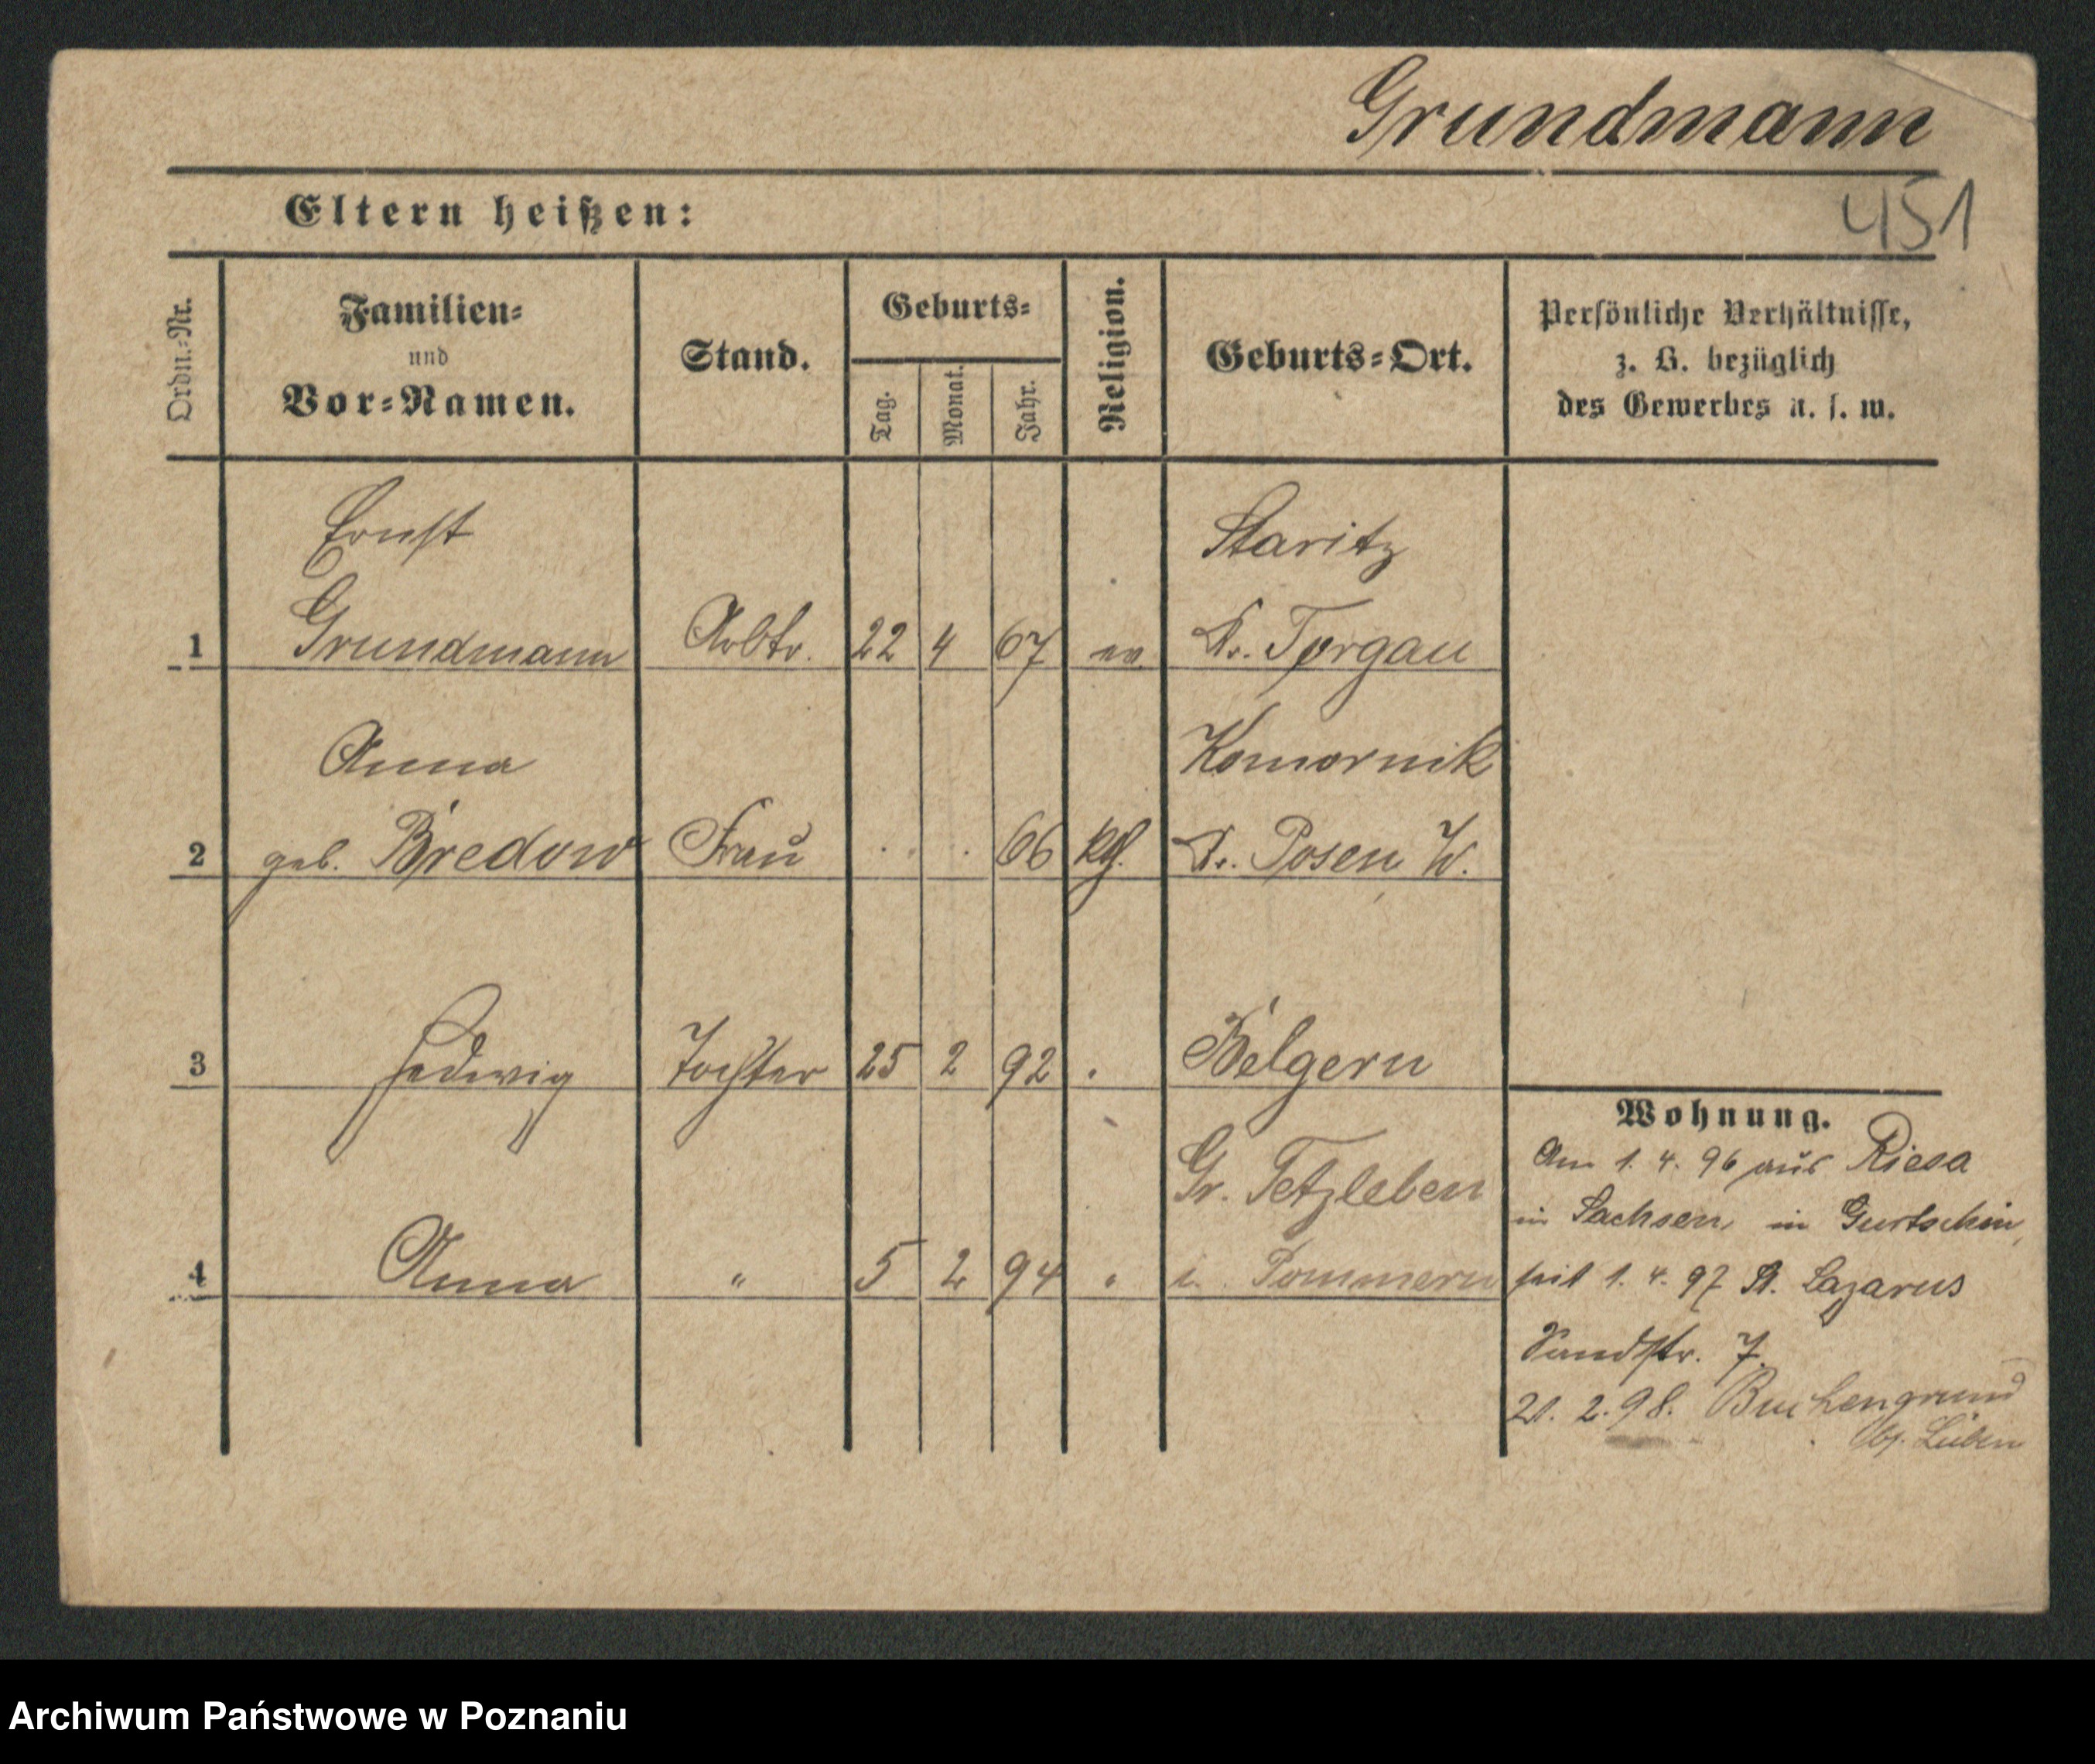 Grundmann
451
Eltern heißen:
Ordn.-Nr.
Familien-
und
Vor-Namen.
Stand.
Geburts-
Tag.
Monat.
Jahr.
Religion.
Geburts-Ort.
Persönliche Verhältnisse,
z. B. bezüglich
des Gewerbes u. s. w.
Ernst
Staritz
1 Grundmann Arbtr. 22 4 67 ev Kr. Torgau
Anna
Komornik
2 geb. Bredow Frau . . 66 kth. Kr. Posen W.
3 Hedwig Tochter 25 2 92 " Belgern
Gr. Tetzleben
4 Anna " 5 2 94 " i. Pommern
Wohnung.
Am 1. 4. 96 aus Riesa
in Sachsen, in Gurtschin,
seit 1. 4. 97 St. Lazarus
Sandstr. 7.
21. 2. 98. Buchengrund
b/. Lüben
Archiwum Państwowe w Poznaniu